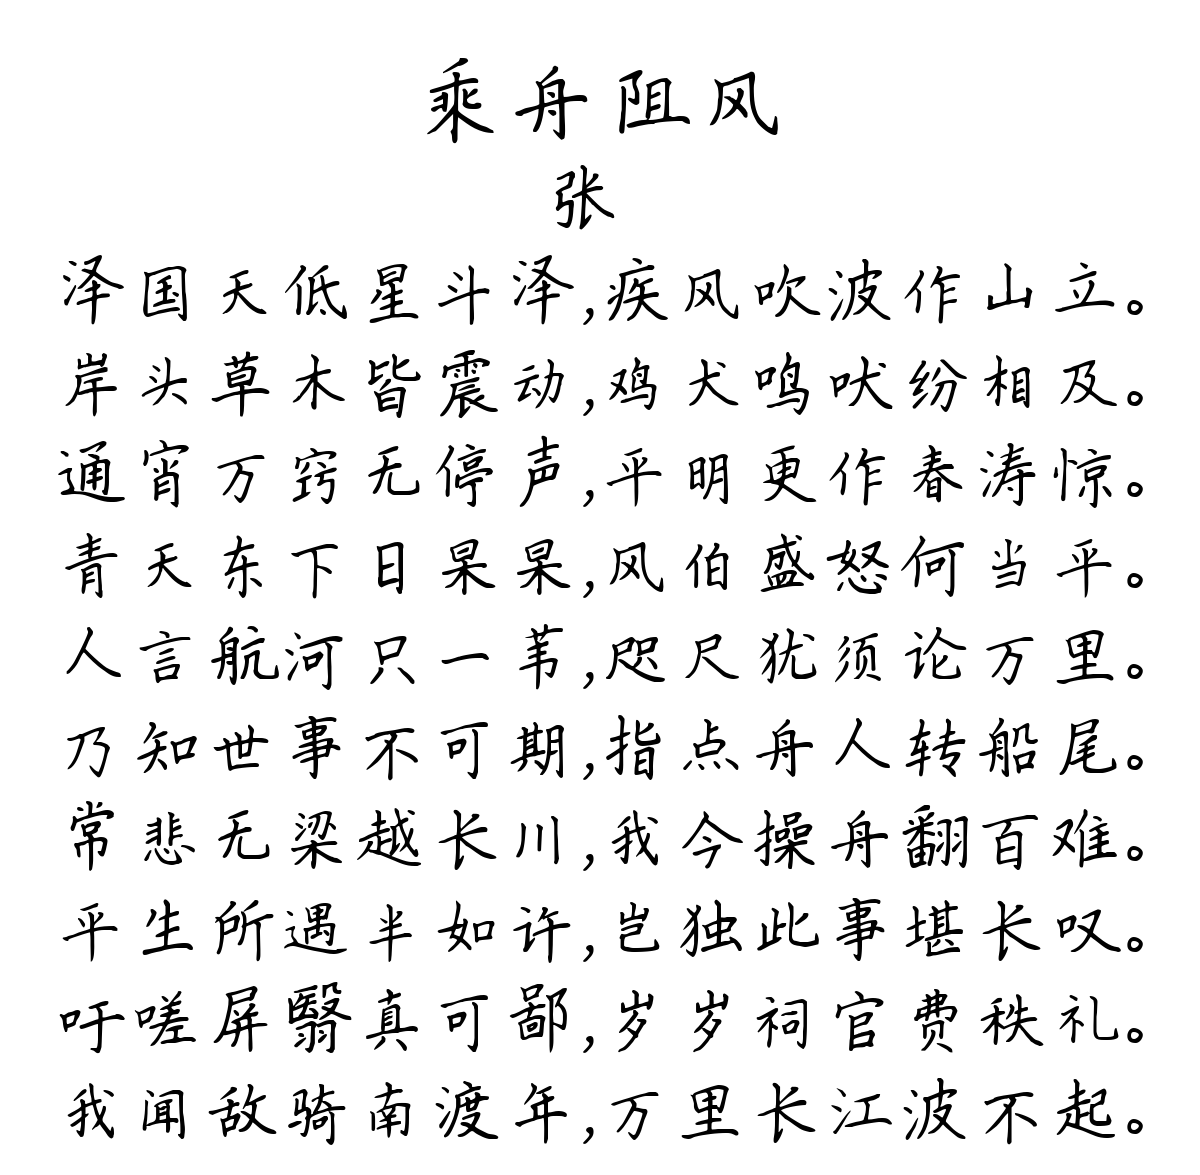 乘舟阻风
张
泽国天低星斗泽,疾风吹波作山立。
岸头草木皆震动,鸡犬鸣吠纷相及。
通宵万窍无停声,平明更作春涛惊。
青天东下日杲杲,风伯盛怒何当平。
人言航河只一苇,咫尺犹须论万里。
乃知世事不可期,指点舟人转船尾。
常悲无梁越长川,我今操舟翻百难。
平生所遇半如许,岂独此事堪长叹。
吁嗟屏翳真可鄙,岁岁祠官费秩礼。
我闻敌骑南渡年,万里长江波不起。